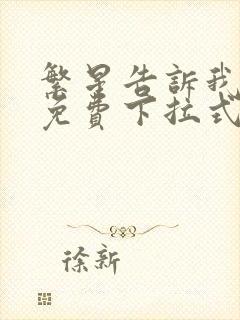 繁星告訴我
免費下拉式
徐新